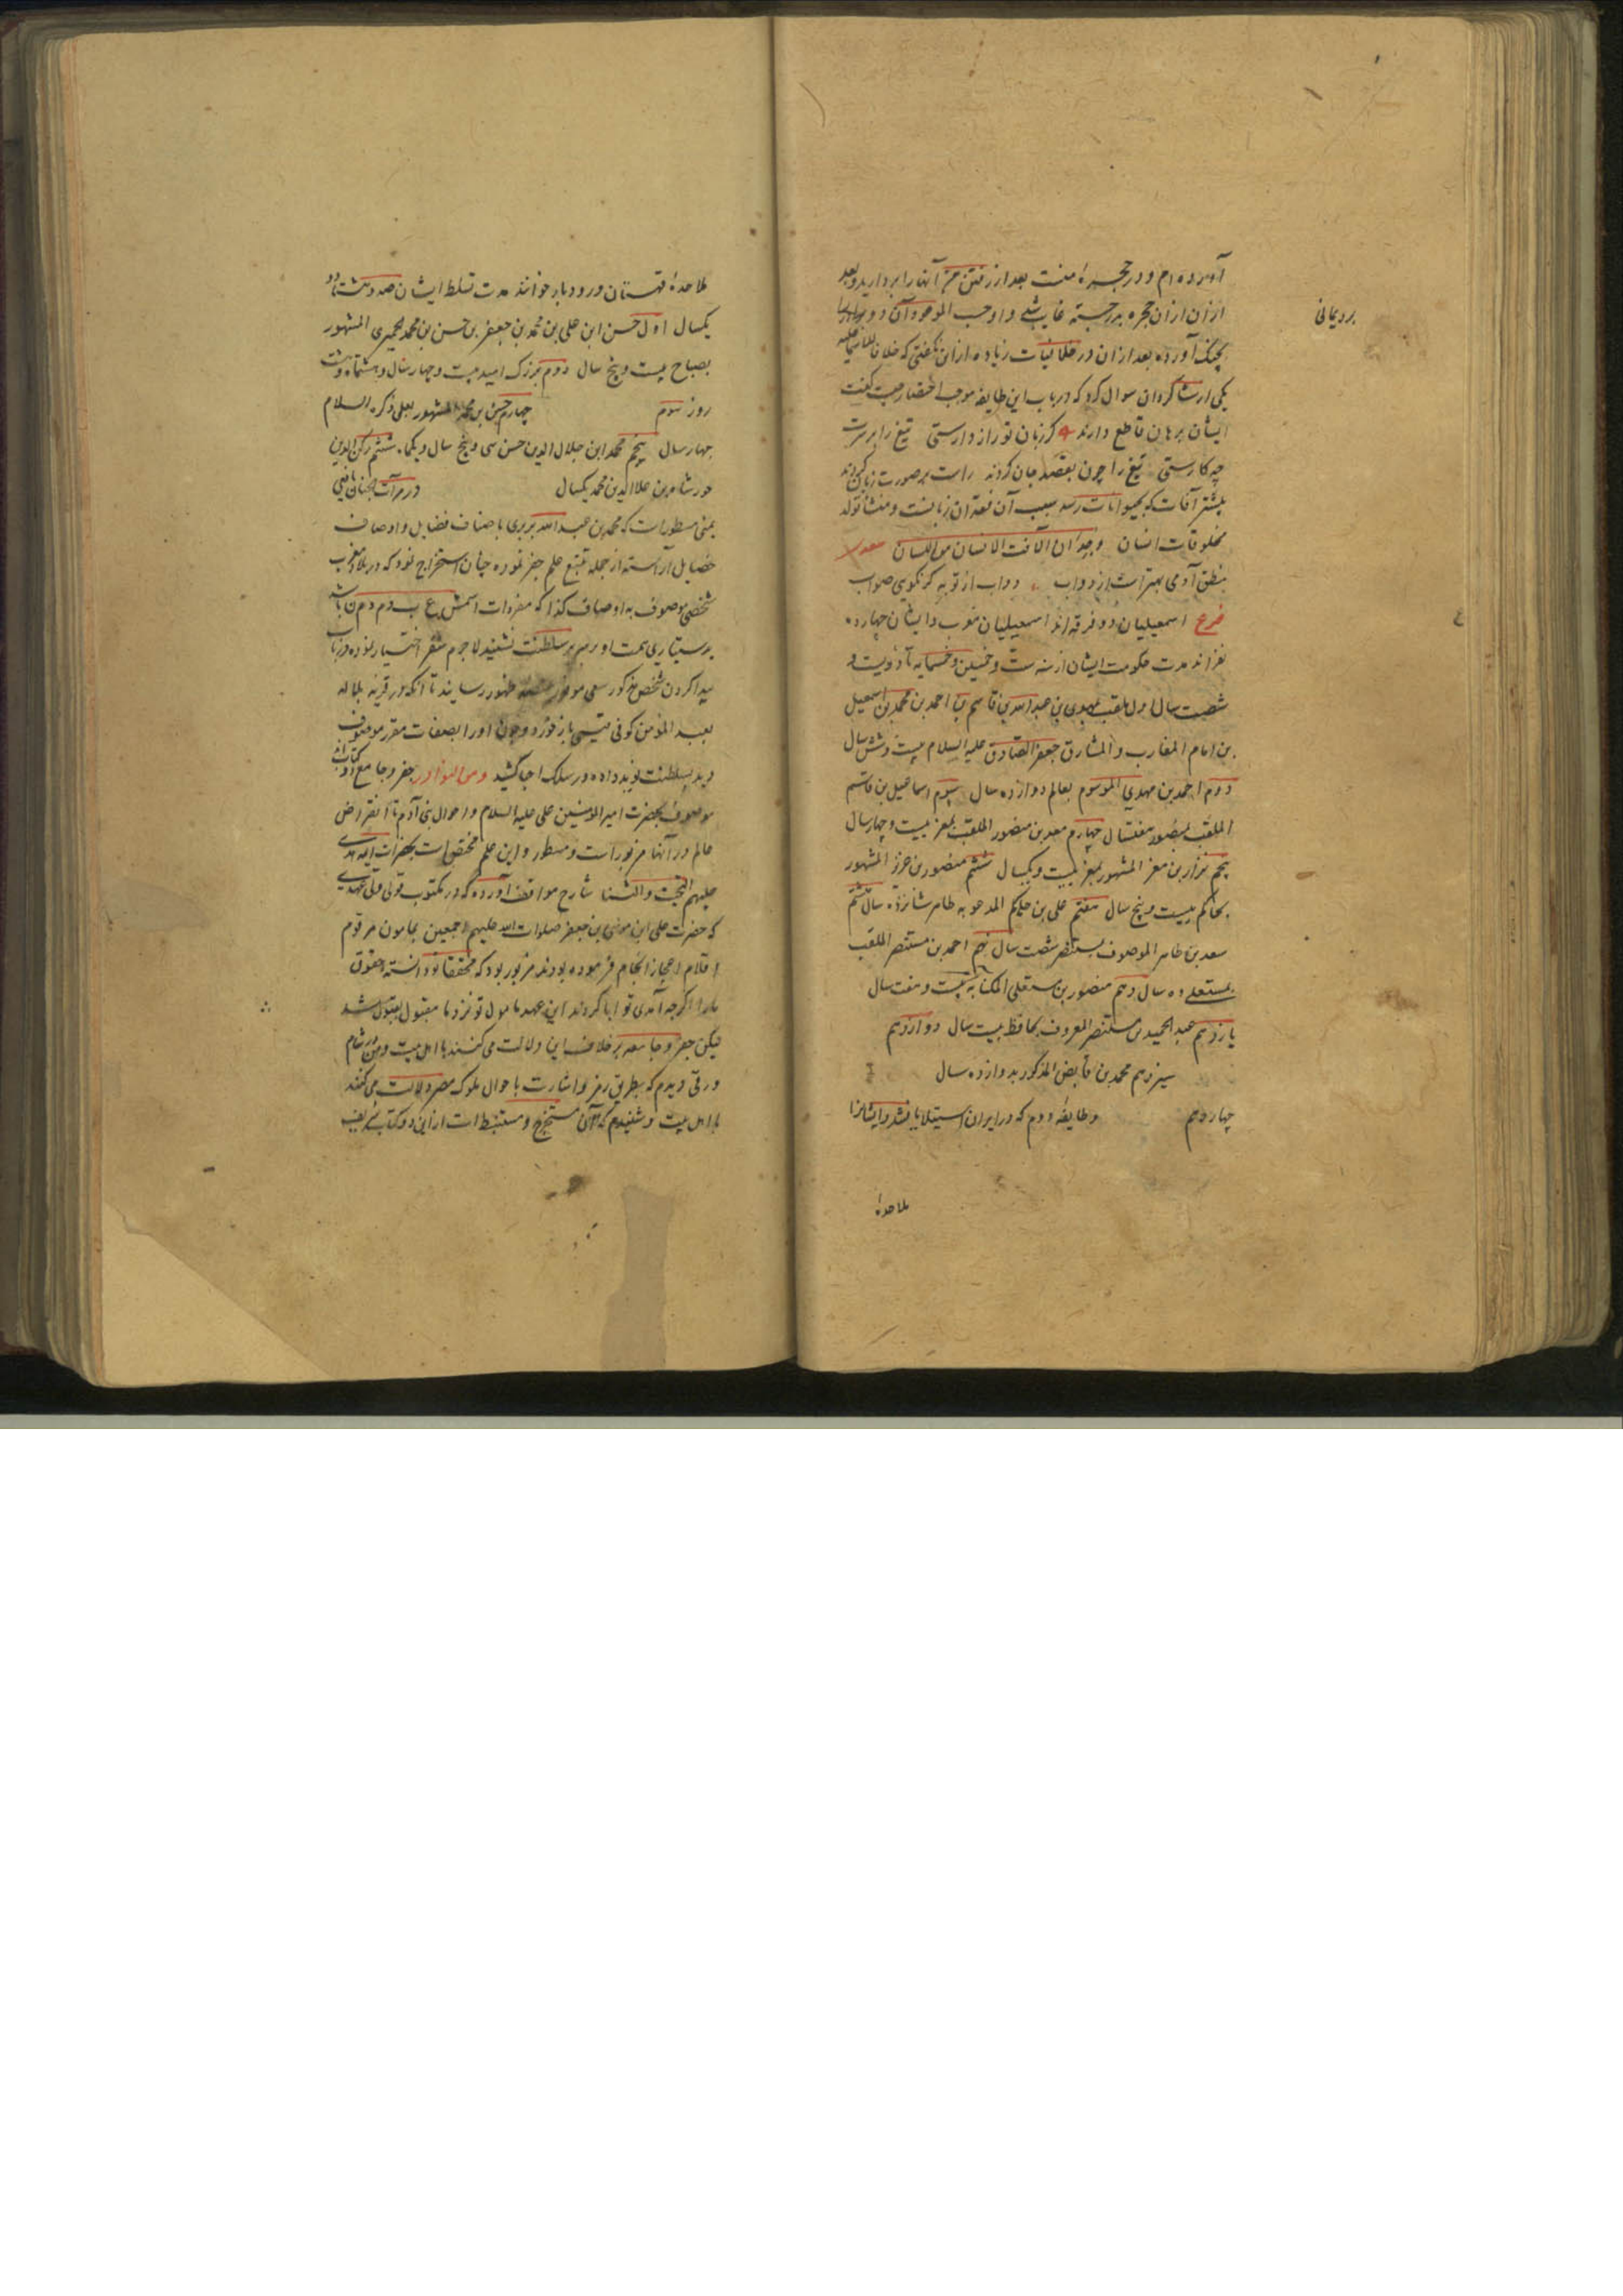 آورده‌ام و در حجره منست بعد از رفتن من آنها را بردارید و بعد
از آن از آن حجره بدر جسته غایب شد و او حسب الموعود آن دو
بچنک آورده بعد از آن در خلافیات زیاده از این نگفتی که خلافا
یکی از شاکردان سوال کرد که در باب این طایفه موجب اختصار چیست گفت
ایشان برهان قاطع دارند کر زبان تو راز دارستی تیغ را بر سرت
چه کارستی تیغ را چون بقصد جان کردند راست بر صورت زبان کردند
بیشتر آفات که بحیوانات رسد سبب آن فقدان زبانست و منشأ تولد
مخلوقات انسان وجدان آلآفت الانسان من اللسان
بنطق آدمی بهتر است از دواب دواب از تو به کر نکویی صواب
فرع اسمعیلیان دو فرقه‌اند اسمعیلیان مغرب و ایشان چهارده
نفراند مدت حکومت ایشان از سنه ست و خمسین و خمسمایه تا دویست و
شصت سال اول ملقب بمهدی بن عبدالله بن قاسم بن احمد بن محمد بن اسمعیل
بن امام المغارب و المشارق جعفر الصادق علیه السلام بیست و شش سال
دوم احمد بن مهدی الموسوم بعالم دوازده سال سیوم اسماعیل بن قاسم
الملقب بمنصور هفتسال چهارم معد بن منصور الملقب بمعز بیست و چهار سال
پنجم نزار بن معز المشهور بمعز بیست و یکسال ششم منصور بن عزیز المشهور
بحاکم بیست و پنج سال هفتم علی بن حاکم المدعو به طاهر شانزده سال هشتم
سعد بن طاهر الموصوف بمستنصر شصت سال نهم احمد بن مستنصر الملقب
بمستعلے ده سال دهم منصور بن مستعلی المکنا به بیست و هفت سال
یازدهم عبدالحمید بن مستنصر المعروف بحافظ بیست سال دوازدهم
سیزدهم محمد بن فایض المذکور بدوازده سال
چهاردهم وطایفه دوم که در ایران استیلا یافتند و ایشانرا
ملاحدهٔ
ملاحدهٔ قهستان و رودبار خوانند مدت تسلط ایشان صد و هشتاد و
یکسال اول حسن ابن علی بن محمد بن جعفر بن حسن بن محمد الحمیری المشهور
بصباح بیست و پنج سال دوم بزرک امید بیست و چهار سال و هشتماه و بیست
روز سوم چهارم حسن بن محمد المشهور بعلی ذکره السلام
چهار سال پنجم محمد ابن جلال الدین حسن سی و پنج سال و یکماه ششم رکن الدین
خورشاه بن علاالدین محمد یکسال در مرآت الجنان یافعی
یمنی مسطور است که محمد بن عبدالله بربری باصناف فضایل و اوصاف
خصایل آراسته از جمله تتبع علم جفر نموده چنان استخراج نمود که در بلاد مغرب
شخصی موصوف به اوصاف کذا که مفردات اسمش ع ب د م و م ن باشد
بدستیاری همت او بر سریر سلطنت نشیند لاجرم سفر اختیار نموده در باب
پیدا کردن شخص مذکور سعی موفور بمنصه ظهور رسانید تا آنکه در قریه بلباله
بعبد المؤمن کوفی قیسی باز خورد و چون او را بصفات مقرر موصوف
دید بسلطنت نوید داده در سلک احبا کشید ومن النوادر جفر و جامع دو کتاب اند
موصوف بحضرت امیرالمومنین علی علیه السلام و احوال بنی آدم تا انقراض
عالم در آنها مزبور است و مسطور و این علم مختص است بحضرات ائمه هدی
علیهم التحیت و الثنا شارح مواقف آورده که در مکتوب قولی ولی عهدی
که حضرت علی ابن موسی بن جعفر صلوات الله علیهم اجمعین بمامون مرقوم
اقلام اعجاز انجام فرموده بودند مزبور بود که محققا تو دانسته حقوق
مارا اکرچه آبای تو ابا کردند این عهد مامول تو نزد ما مقبول بقبول شد
لیکن جفر و جامعه بر خلاف این دلالت می کنند با اهل بیت و من در شام
ورقی دیدم که بطریق رمز و اشارت باحوال ملوک مصر دلالت می کنند
با اهل بیت و شنیدم که آن مستخرج و مستنبط است از این دو کتاب شریف